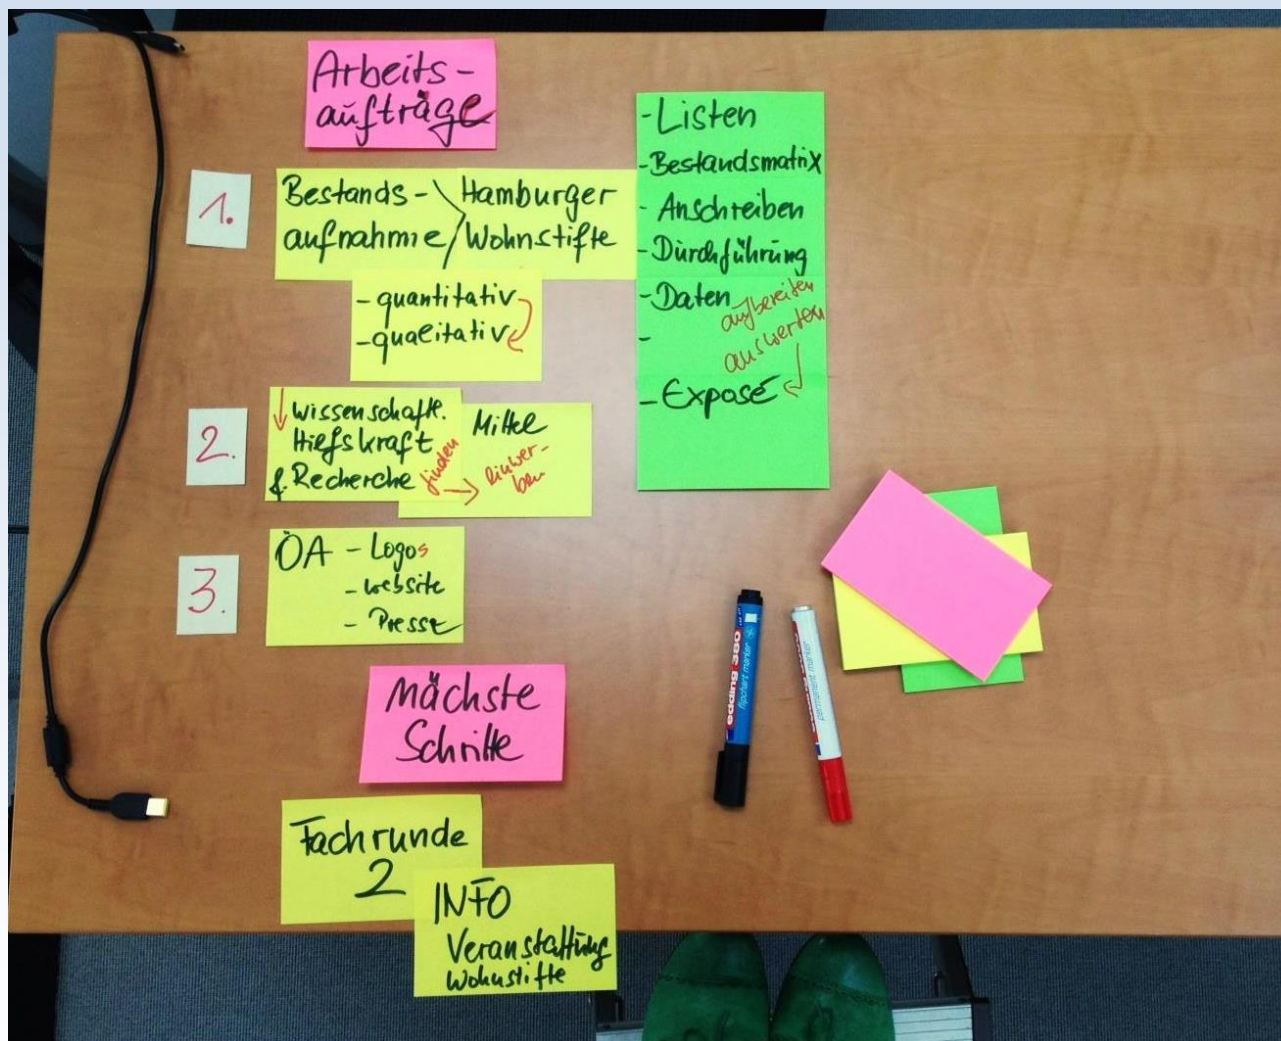 Arbeits-
aufträge
1.
Bestands-
aufnahme
Hamburger
Wohnstifte
- quantitativ
- qualitativ
- Listen
- Bestandsmatrix
- Anschreiben
- Durchführung
- Daten aufbereiten
- auswerten
- Exposé
2.
Wissenschaftl.
Hilfskraft
f. Recherche
finden
Mittel
einwer-
ben
3.
ÖA - Logos
- Website
- Presse
Nächste
Schritte
Fachrunde
2
INFO
Veranstaltung
Wohnstifte
edding 380
flipchart marker
permanent marker